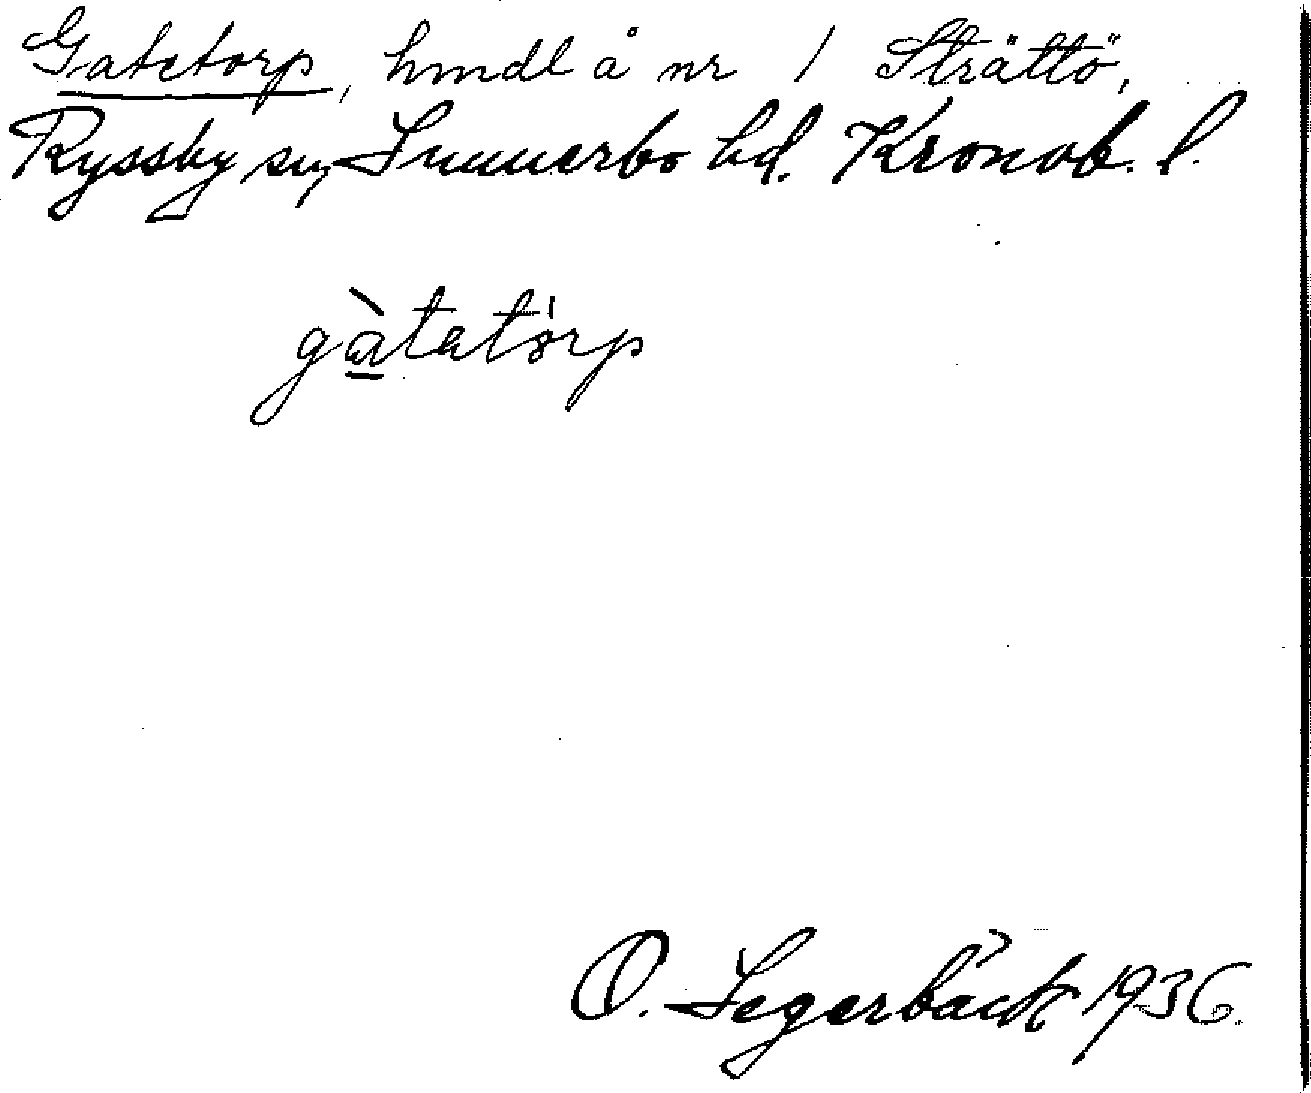 Gatetorp, hmdl å nr 1 Strättö,
Ryssby sn, Sunnerbo hd. Kronob. l.
gàtatòrp
O. Segerbäck 1936.